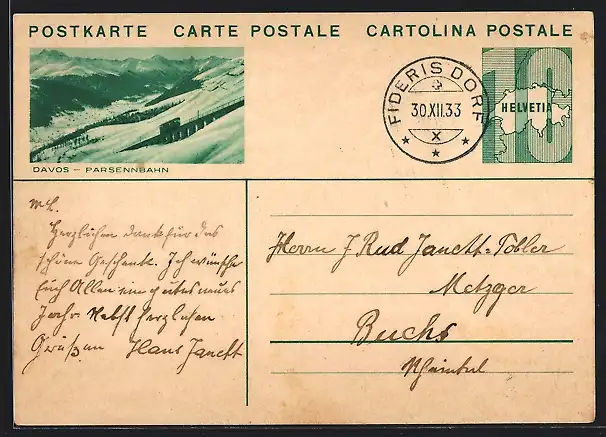 POSTKARTE CARTE POSTALE CARTOLINA POSTALE
DAVOS – PARSENNBAHN
FIDERIS DORF
30.XII.33
X
10
HELVETIA
M. L.
Herzlichen Dank für das
schöne Geschenk. Ich wünsche
Euch Allen ein gutes neues
Jahr. Nebst herzlichen
Grüßen Hans Janett
Herrn J Rud Janett-Tobler
Metzger
Buchs
Rheintal